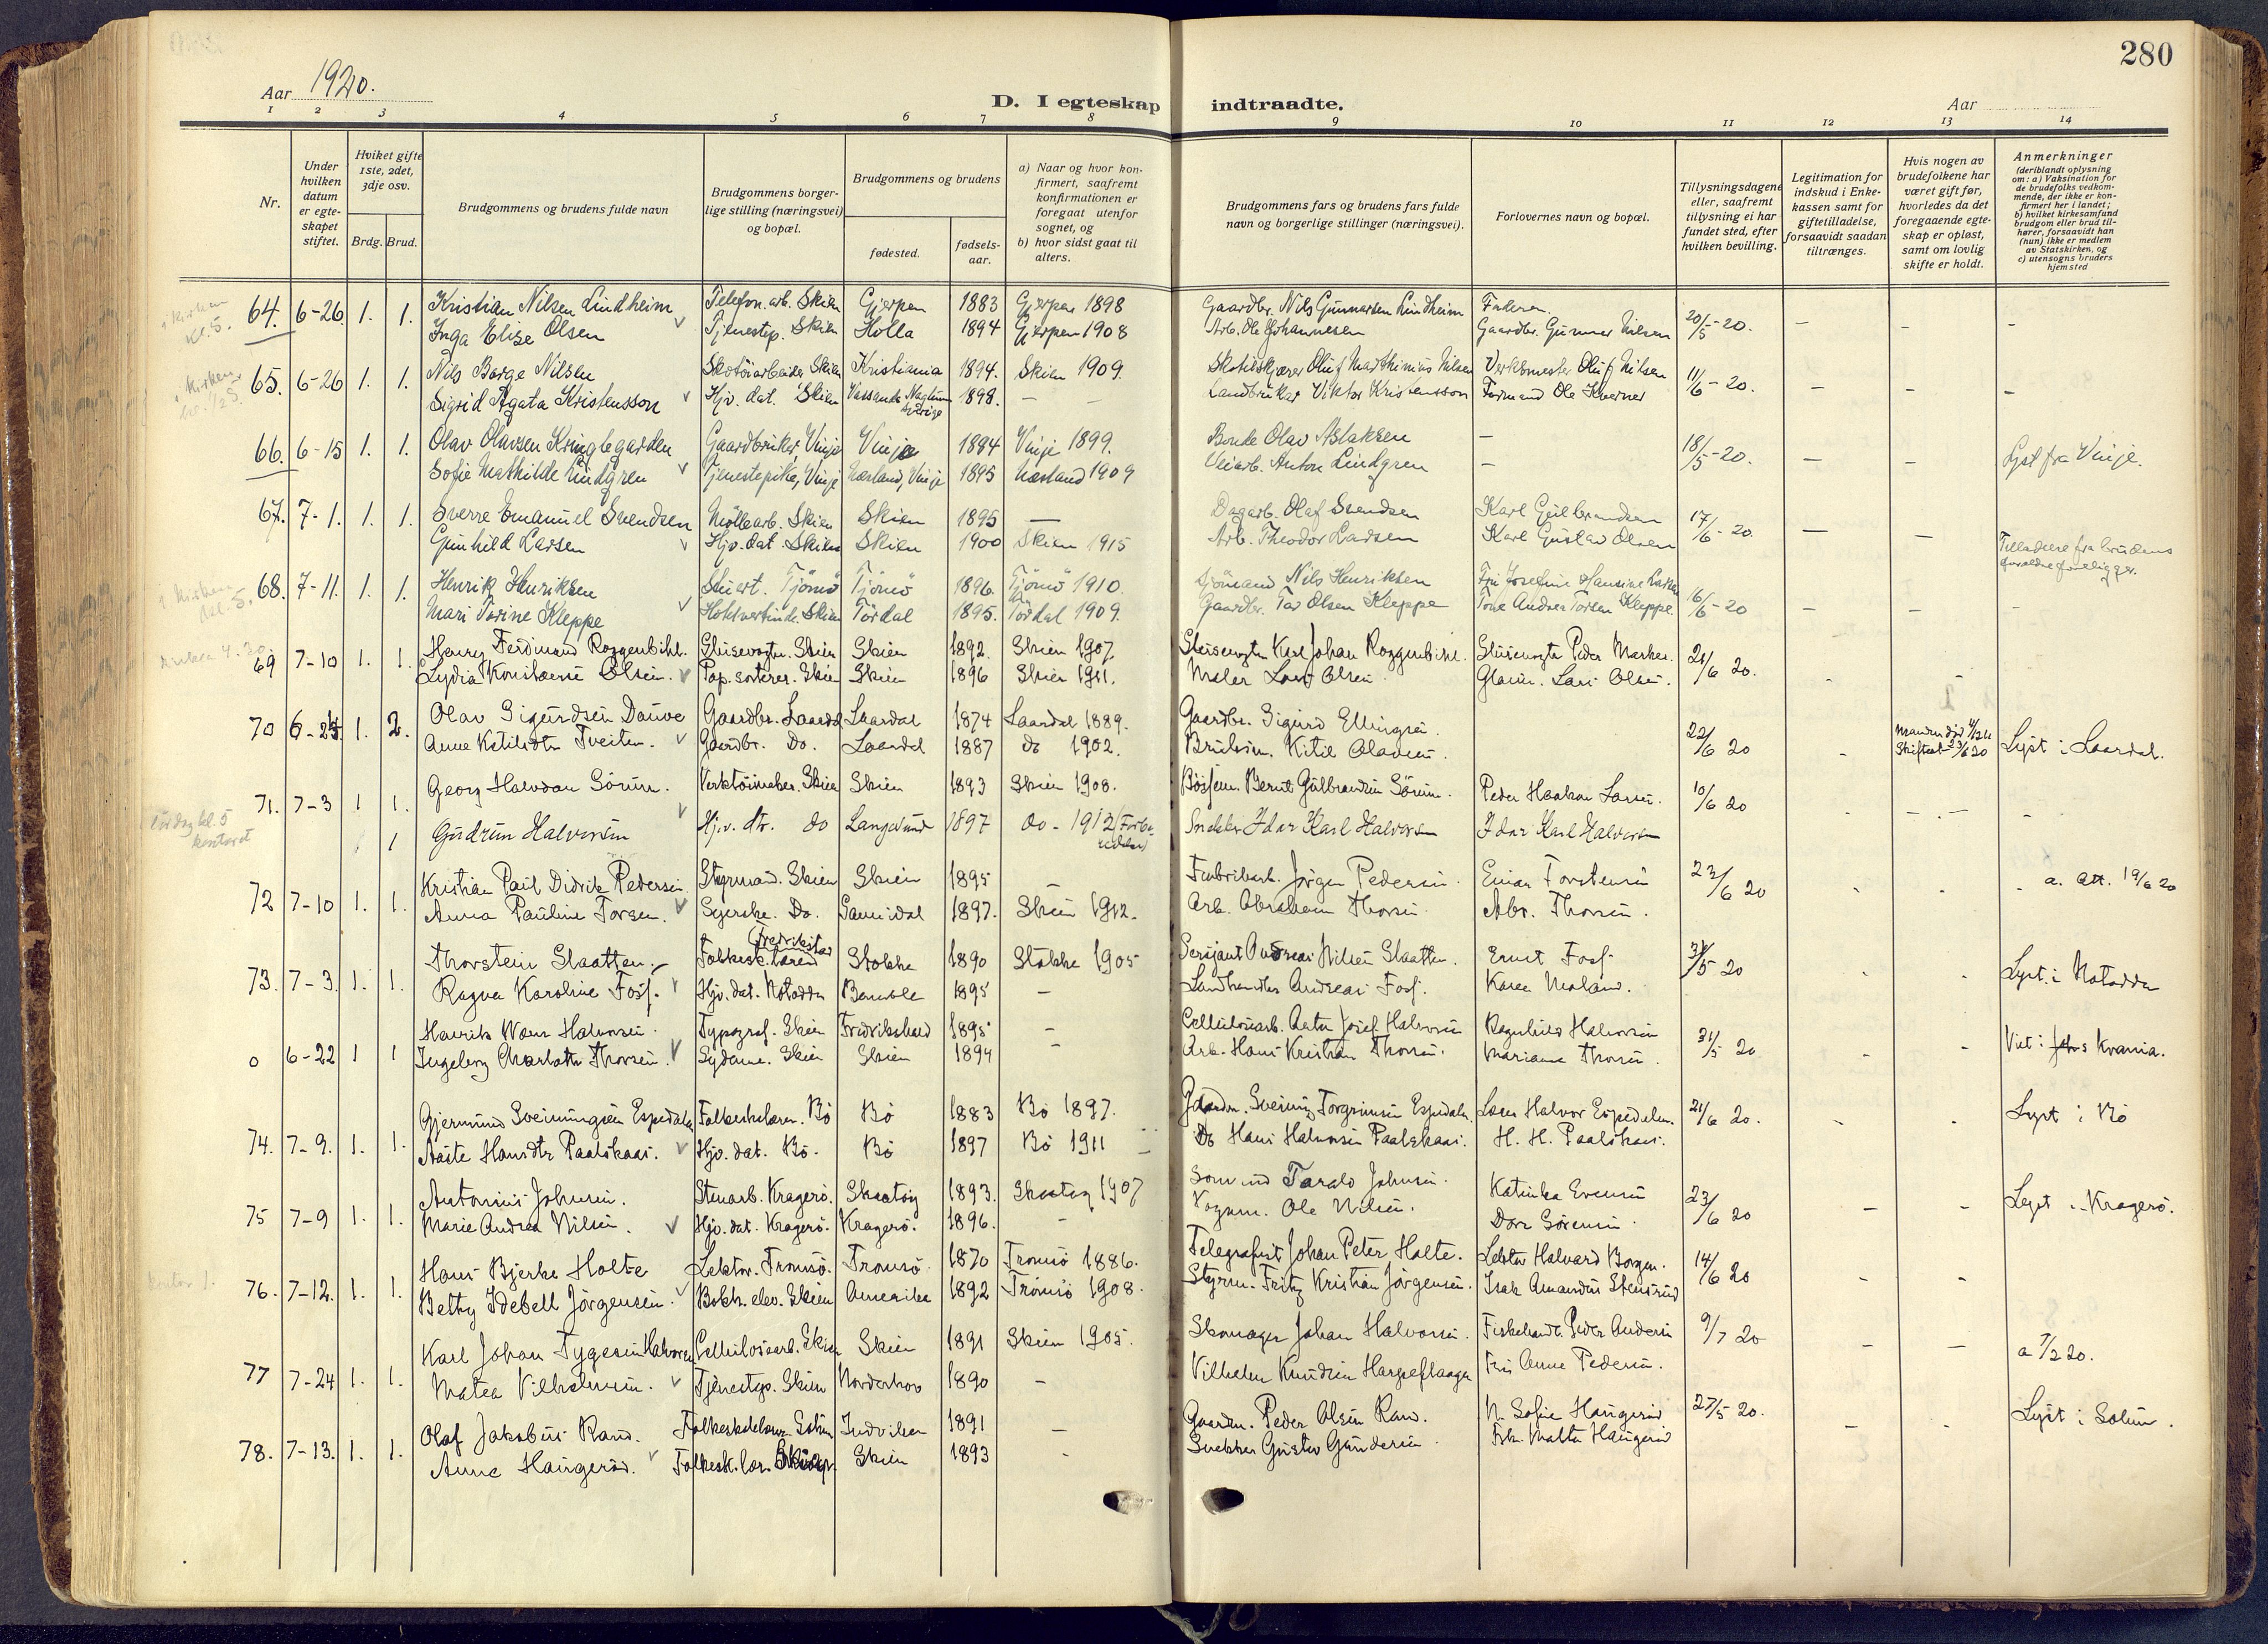 280
Aar 1920.
D. I egteskap indtraadte.
Aar
1 2 3 4 5 6 7 8 9 10 11 12 13 14
Nr.
Under hvilken datum er egte-skapet stiftet.
Hviket gifte 1ste, 2det, 3dje osv.
Brdg. Brud.
Brudgommens og brudens fulde navn
Brudgommens borger-lige stilling (næringsvei) og bopæl.
Brudgommens og brudens
fødested.
fødsels-aar.
a) Naar og hvor kon-firmert, saafremt konfirmationen er foregaat utenfor sognet, og
b) hvor sidst gaat til alters.
Brudgommens fars og brudens fars fulde navn og borgerlige stillinger (næringsvei).
Forlovernes navn og bopæl.
Tillysningsdagene eller, saafremt tillysning ei har fundet sted, efter hvilken bevilling.
Legitimation for indskud i Enke-kassen samt for giftetilladelse, forsaavidt saadan tiltrænges.
Hvis nogen av brudefolkene har været gift før, hvorledes da det foregaaende egte-skap er opløst, samt om lovlig skifte er holdt.
Anmerkninger (deriblandt oplysning om: a) Vaksination for de brudefolks vedkom-mende, der ikke er kon-firmert her i landet; b) hvilket kirkesamfund brudgom eller brud til-hører, forsaavidt han (hun) ikke er medlem av Statskirken, og c) utensogns bruders hjemsted
i kirken kl. 5.
64. 6-26 1. 1. Kristian Nilsen Lindheim Telefon. arb. Skien Gjerpen 1883 Gjerpen 1898 Gaardbr. Nils Gunnarsen Lindheim Faderen. 20/5-20. - - -
Inga Elise Olsen Tjenestep. Skien Holla 1894 Gjerpen 1908 Arb. Ole Johannesen Gaardbr. Gunnar Nilsen
65. 6-26 1. 1. Nils Borge Nilsen Skotöiarbeider Skien Kristiania 1894. Skien 1909. Oluf Marthinius Nilsen Verksmester Oluf Nilsen 11/6-20. - - -
Sigrid Agata Kristensson Hjv. dat. Skien 1898. - - Landbrukar Viktor Kristensson Ole Kverner
66. 6-15 1. 1. Olav Olavsen Kringlegarden Gaardbruker, Vinje Vinje 1894 Vinje 1899. Bonde Olav Aslaksen - 18/5-20. - - Lyst fra Vinje.
Sofie Mathilde Lindgren Tjenestepike, Vinje Næsland, Vinje 1895 Næsland 1909 Veiarb. Anton Lindgren -
67. 7-1. 1. 1. Sverre Emanuel Svendsen Möllearb. Skien Skien 1895 - Dagarb. Olaf Svendsen Karl Gulbrandsen 17/6-20. - -
Gunhild Larsen Hjv. dat. Skien Skien 1900 Skien 1915 Arb. Theodor Larsen Karl Gustav Olsen Tilladelse fra brudens foreldre foreligger.
68. 7-11. 1. 1. Henrik Henriksen Stuert. Tjömö Tjömö 1896. Tjömö 1910. Sjömand Nils Henriksen Frk Josefine Hansine 16/6-20 - - -
Mari Torine Kleppe Hotelvertinde. Skien Tördal 1895. Tördal 1909. Gaardbr. Tor Olsen Kleppe Tone Andrea Torsen Kleppe.
69 7-10 1. 1. Henry Ferdinand Roggenbihl. Slusevogtn. Skien Skien 1892. Skien 1907. Slusevogtn Karl Johan Roggenbihl. Slusevogtn Peder Marker. 21/6 20.
Lydia Konstanse Olsen. Pap. sorterer. Skien Skien 1896 Skien 1911. Maler Lars Olsen. Lars Olsen.
70 6-24. 1. 2. Olav Sigurdsen Dauve Gaardbr. Laardal Laardal 1874 Laardal 1889. Gaardbr. Sigurd Ellingsen. 22/6 20 Manden död Skiftet 23/6 20 Lyst i Laardal.
Anne Ketilsdtr Tveiten. Gaardbr. Do. Laardal 1887 do 1902. Ketil Olavsen.
71. 7-3 1 1. Georg Halvdan Sörum. Verktöimaker. Skien Skien 1893 Skien 1908. Bernt Gulbrandsen Sörum. Peder Haakon Larsen. 10/6 20
Lördag kl. 5 kontoret
1 Gudrun Halvorsen Hjv. dtr. do Langesund 1897 do - 1912 Snekker Idar Karl Halvorsen Idar Karl Halvorsen
72 7-10 1. 1. Kristian Paul Didrik Pedersen. Styrmand. Skien Skien 1895 - Fabrikarb. Jørgen Pedersen. Einar Torstensen 23/6 20 a. att. 19/6 20
Anna Pauline Torsen. Syerske. Do. Samsdal 1897. Skien 1912. Arb. Abraham Thorsen. Abr. Thorsen.
73. 7-3. 1. 1. Thorstein Slaatten. Folkesk.lærer Fredrikstad Stokke 1890 Stokke 1905 Sersjant Andreas Nilsen Slaatten. Ernst Foss. 31/5 20 Lyst i Notodden
Ragna Karoline Foss. Hjv. dat. Notodden Bamble 1895 - Landhandler Andreas Foss. Karen Moland.
0 6-22 1 1 Henrik Wærn Halvorsen. Typograf. Skien Fredrikshald 1895 - Cellulosearb. Anton Josef Halvorsen Ragnhild Halvorsen 31/5 20 Viet i Johs Krania.
Ingeborg Charlotte Thorsen. Sydame. Skien Skien 1894 - Arb. Hans Kristian Thorsen. Mariane Thorsen.
74. 7-9. 1. 1. Gjermund Sveinungsen Espedalen Folkeskolelærer. Bö Bö 1883 Bö 1897. Gaardm. Sveinung Torgrimsen Espedalen Lærer Halvor Espedalen. 21/6 20. Lyst i Bö
Aaste Hansdtr Paalskaas. Hjv. dat. Bö. Bö 1897 Bö 1911 Do Hans Halvorsen Paalskaas. H. H. Paalskaas.
75 7-9 1. 1. Antonius Johnsen. Stenarb. Kragerö. Skaatöy 1893. Skaatöy 1907 Tarald Johnsen. Katinka Evensen 23/6 20 - - Lyst i Kragerö.
Marie Andrea Nilsen. Hjv. dat. Kragerö. Kragerö. 1896. - Vognm. Ole Nilsen. Dore Sörensen.
kontor 1.
76. 7-12. 1. 1. Hans Bjerke Holte Lektor. Tromsö. Tromsö. 1870 Tromsö 1886. Telegrafist Johan Peter Holte. Lektor Halvard Borgen. 14/6 20 - -
Bethy Idebell Jörgensen. Bokh. elev. Skien Amerika 1892 Tromsö 1908. Styrm. Fritz Kristian Jörgensen. Isak Amandus Stensrud
77 7-24 1. 1. Karl Johan Tygesen Halvorsen Cellulosearb. Skien Skien 1891 Skien 1905. Skomager Johan Halvorsen. Fiskehandl. Peder Andersen 9/7 20 - - a 7/2 20.
Matea Vilhelmsen. Tjenestep. Skien Norderhov 1890 - Vilhelm Knudsen Fru Anne Pedersen.
78. 7-13. 1. 1. Olaf Jakobus Rand. Folkeskolelærer Solum Indviken 1891 - Gaardm. Peder Olsen Rand. N. Sofie Haugerød 27/5 20. - Lyst i Solum.
Anne Haugerød. Folkesk. lær. Skien 1893 - Snekker Gustav Gundersen. Frk. Malta Haugerød